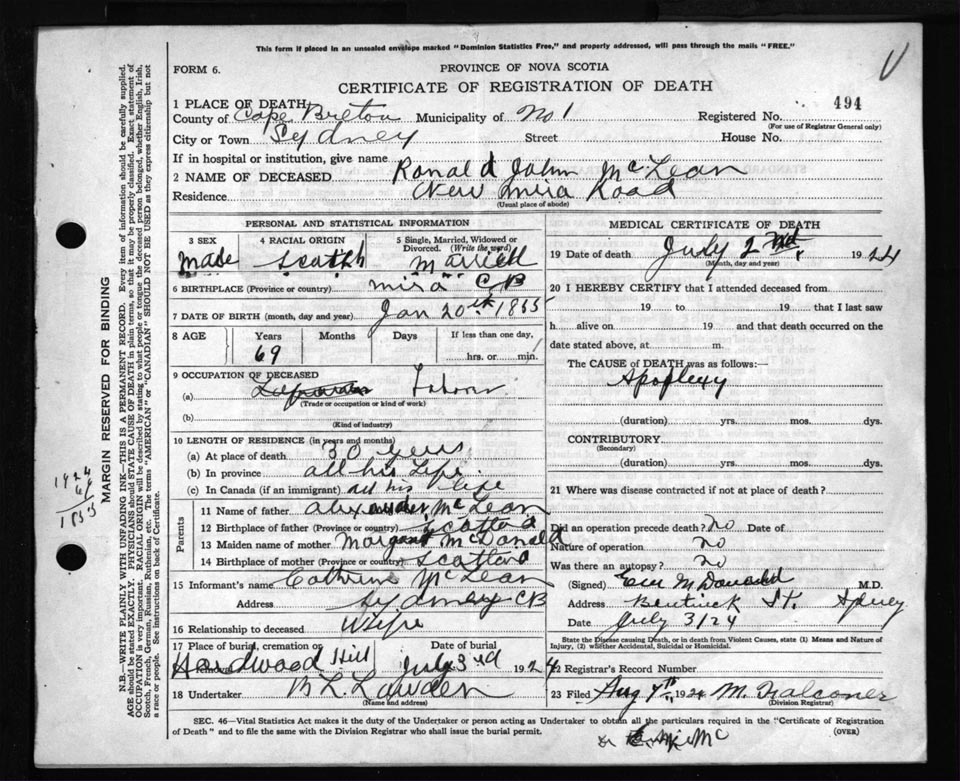 This form if placed in an unsealed envelope marked "Dominion Statistics Free," and properly addressed, will pass through the mails "FREE."
FORM 6.
PROVINCE OF NOVA SCOTIA
CERTIFICATE OF REGISTRATION OF DEATH
494
1 PLACE OF DEATH
County of Cape Breton Municipality of No 1 Registered No.
(For use of Registrar General only)
City or Town Sydney Street House No.
If in hospital or institution, give name
2 NAME OF DECEASED Ronald John McLean
Residence New Mira Road
(Usual place of abode)
PERSONAL AND STATISTICAL INFORMATION
3 SEX 4 RACIAL ORIGIN 5 Single, Married, Widowed or Divorced. (Write the word)
Male Scotch Married
6 BIRTHPLACE (Province or country) Mira CB
7 DATE OF BIRTH (month, day and year) Jan 20th 1855
8 AGE Years Months Days If less than one day,
69 hrs. or min.
9 OCCUPATION OF DECEASED
(a) Labour
(Trade or occupation or kind of work)
(b)
(Kind of industry)
10 LENGTH OF RESIDENCE (in years and months)
(a) At place of death 30 years
(b) In province all his Life
(c) In Canada (if an immigrant) all his life
Parents
11 Name of father Alexander McLean
12 Birthplace of father (Province or country) Scotland
13 Maiden name of mother Margaret McDonald
14 Birthplace of mother (Province or country) Scotland
15 Informant's name Cathrine McLean
Address Sydney CB
16 Relationship to deceased Wife
17 Place of burial, cremation or Date of burial
Hardwood Hill July 3rd 1924
18 Undertaker
(Name and address)
MEDICAL CERTIFICATE OF DEATH
19 Date of death July 2nd 1924
(Month, day and year)
20 I HEREBY CERTIFY that I attended deceased from
19 to 19 that I last saw
h alive on 19 and that death occurred on the
date stated above, at m.
The CAUSE OF DEATH was as follows:
Apoplexy
(duration) yrs. mos. dys.
CONTRIBUTORY
(Secondary)
(duration) yrs. mos. dys.
21 Where was disease contracted if not at place of death?
Did an operation precede death? no Date of
Nature of operation no
Was there an autopsy? no
(Signed) McDonald M.D.
Address Bentinck St. Sydney
Date July 3/24
State the Disease causing Death, or in death from Violent Causes, state (1) Means and Nature of Injury, (2) whether Accidental, Suicidal or Homicidal.
22 Registrar's Record Number
23 Filed Aug 7th 1924 M. Falconer
(Division Registrar)
SEC. 46—Vital Statistics Act makes it the duty of the Undertaker or person acting as Undertaker to obtain all the particulars required in the "Certificate of Registration
of Death" and to file the same with the Division Registrar who shall issue the burial permit.
(OVER)
MARGIN RESERVED FOR BINDING
N.B.—WRITE PLAINLY WITH UNFADING INK—THIS IS A PERMANENT RECORD. Every item of information should be carefully supplied.
AGE should be stated EXACTLY. PHYSICIANS should STATE CAUSE OF DEATH in plain terms, so that it may be properly classified. Exact statement of
OCCUPATION is very important. RACIAL ORIGIN will be described by stating to what people or tongue the deceased person belonged, whether English, Irish,
Scotch, French, German, Russian, Ruthenian, etc. The terms "AMERICAN" or "CANADIAN" SHOULD NOT BE USED as they express citizenship but not
a race or people. See instructions on back of Certificate.
1924
69
1855